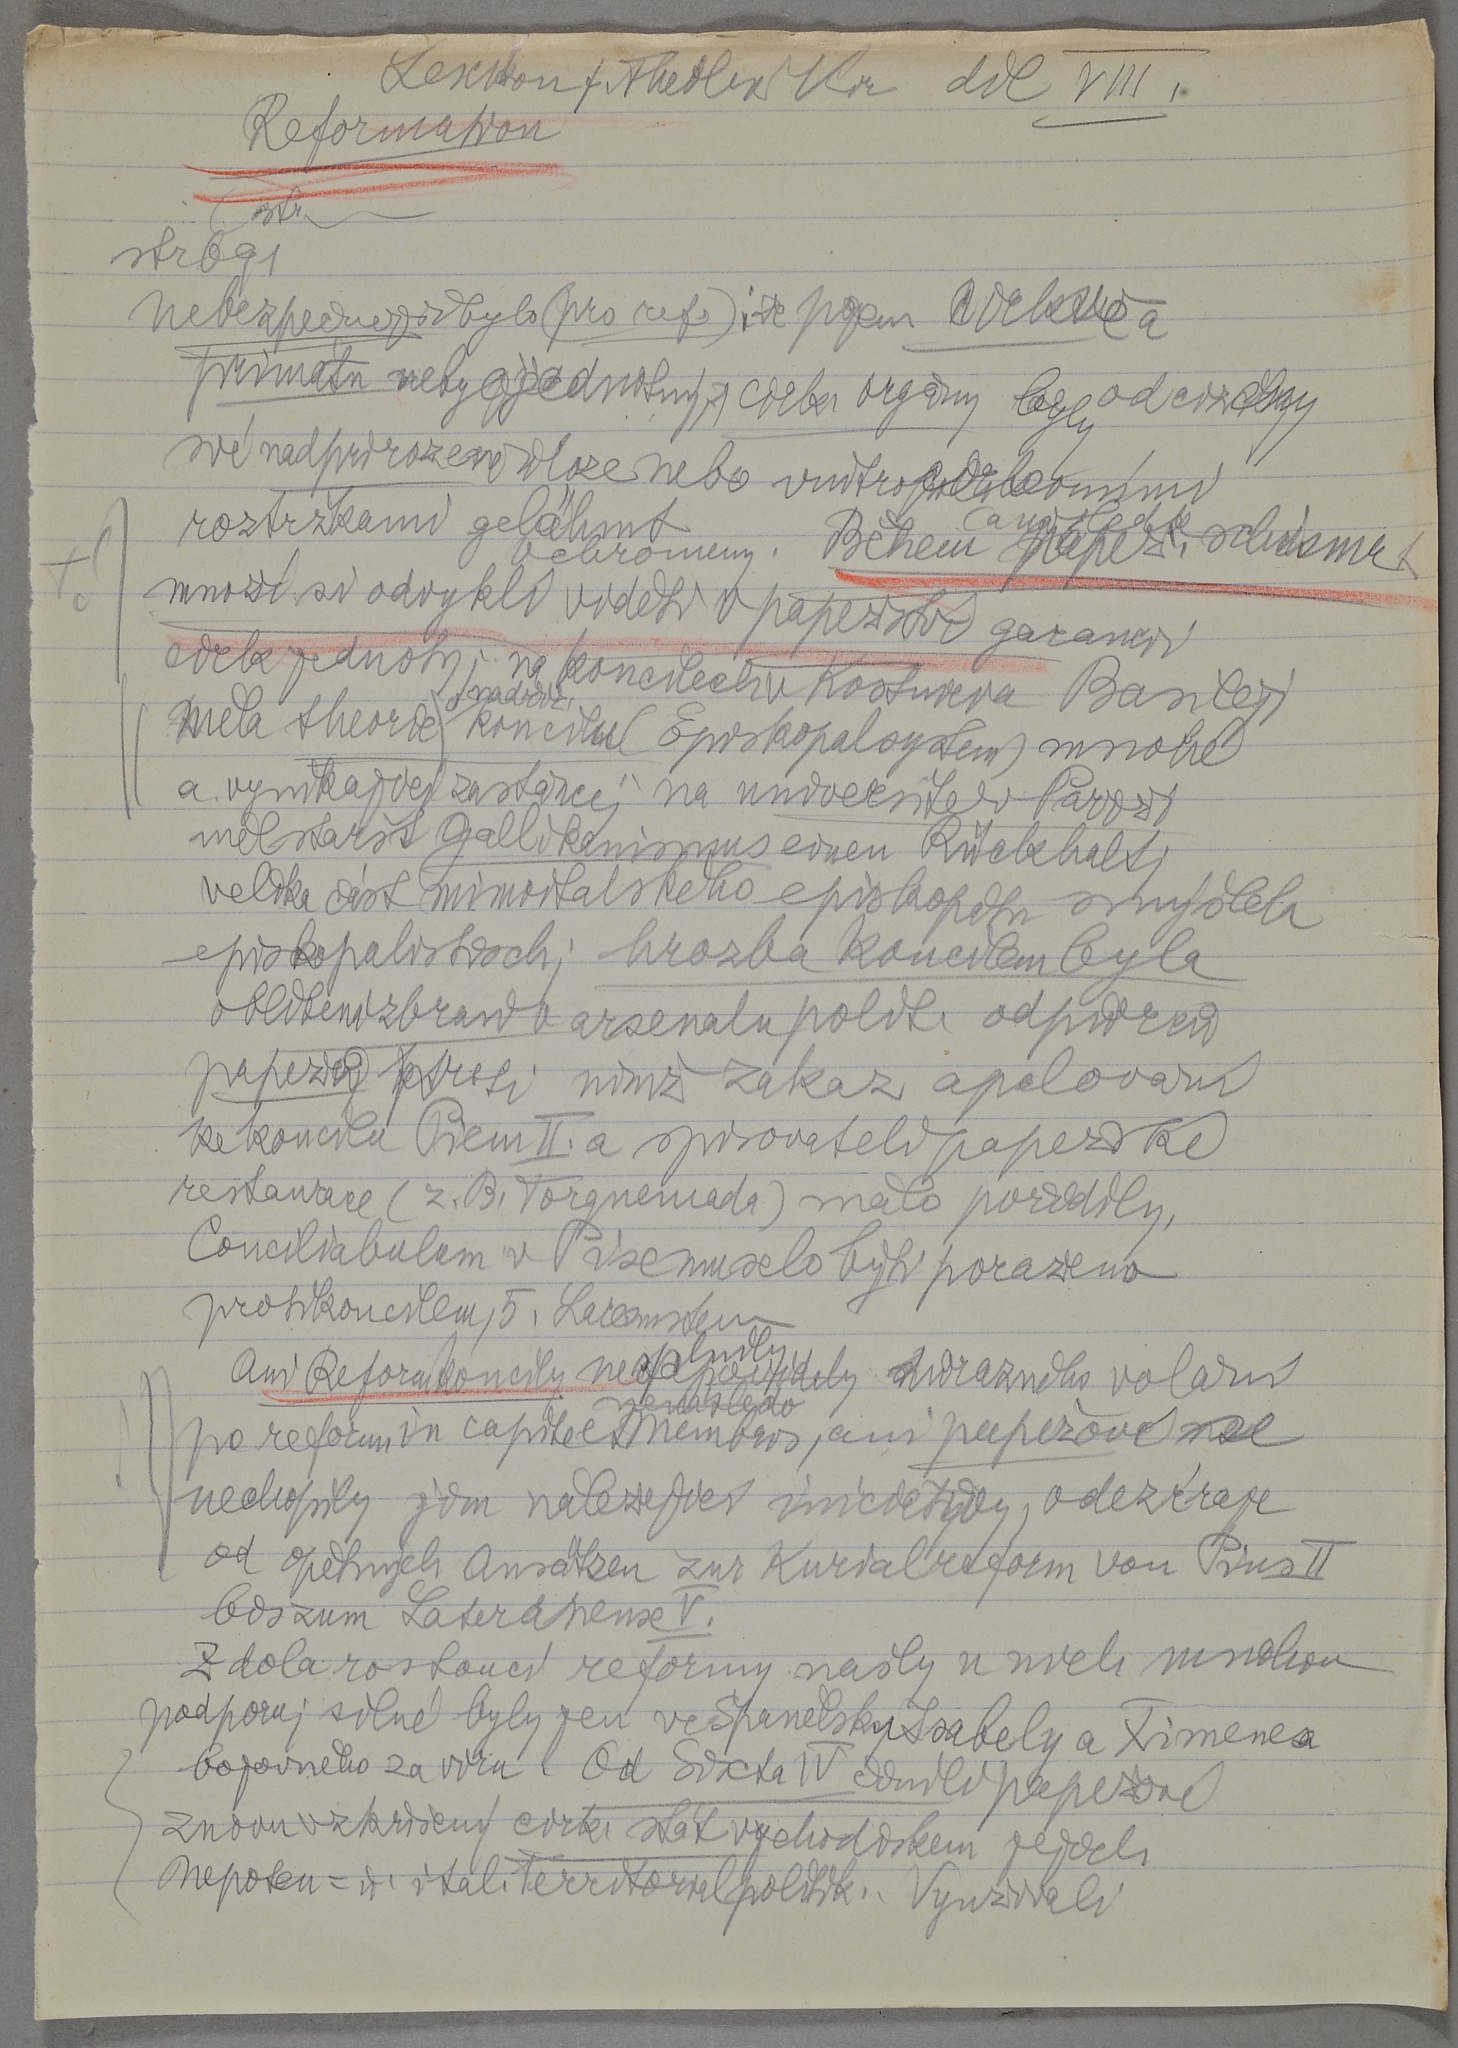 Lexikon f. Theol u Kir díl VIII.
Reformation
str
str 691
Nebezpečnější bylo (pro ref.) že pojem církve a
primátu nebyl jednotný, círke. orgány byly od cizeny
své nadpřirozené úloze nebo vnitro církevními
roztržkami gelähmt
ochromeny. Během papež. schismat
mnozí si odvykli viděti v papežství garancii
círk jednoty, na koncilech v Kostnici a Basileji
měla theorie koncilu (Episkopalsystem) mnohé
nadřaz.
a vynikající zastánce; na universitě v Paříži
měl starší Gallikanismus einen Rückhalt;
velká část mimoitalského episkopátu smýšlela
episkopalistisch; hrozba koncilem byla
oblíbená zbraní v arsenalu polit. odpůrců
papežů proti nimž zákaz apelovaní
ke koncilu Piem II. a spisovatelé papežské
restaurace (z. B. Torquemada) málo pořídily,
Conciliabulum v Pise muselo býti poraženo
protikoncilem, 5. Lateranskem
Ani Reformkoncily neuposlechly důrazného volání
po reform in capite et membris, ani papežové se
nechopily jim naležející iniciativy, odezíraje
od opětných Ansätzen zur Kurialreform von Pius II
bis zum Lateranense V.
Z dola rostoucí reformy našly u nich mnohou
podporu, silné byly jen ve Španělsku Isabely a Ximenea
bojovného za víru. Od Sixta IV činili papežové
znovu vzkříšený círk. stát východiskem jejich
Nepoten- u. ital. Territorialpolitik. Využívali